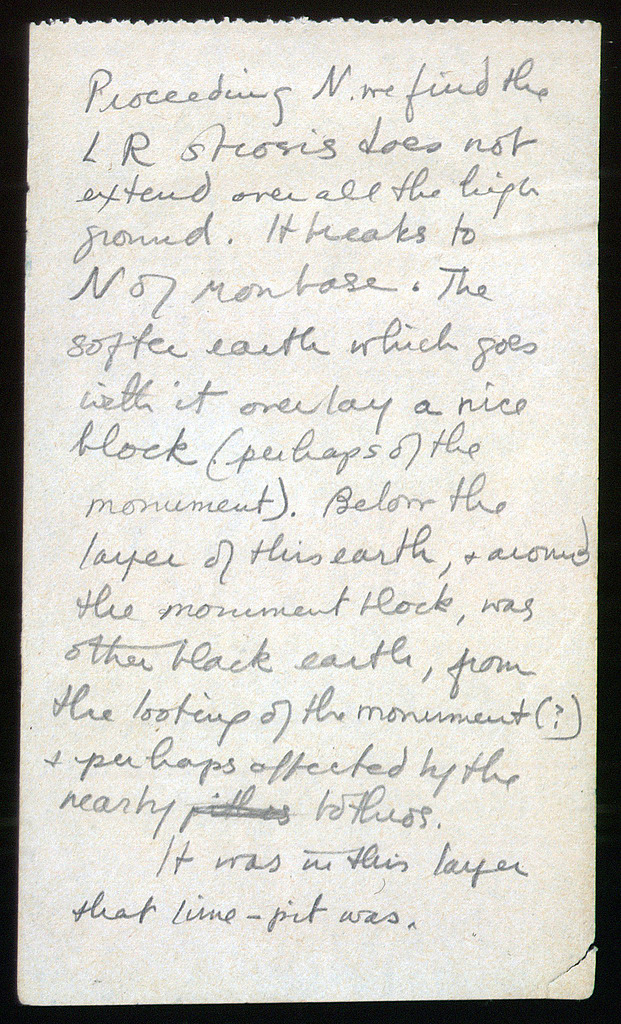 Proceeding N. we find the
L R strosis does not
extend over all the high
ground. It breaks to
N of mon base. The
softer earth which goes
with it overlay a nice
block (perhaps of the
monument). Below the
layer of this earth, + around
the monument block, was
other black earth, from
the looting of the monument (?)
+ perhaps affected by the
nearby pithos bothros.
It was in this layer
that lime-pit was.